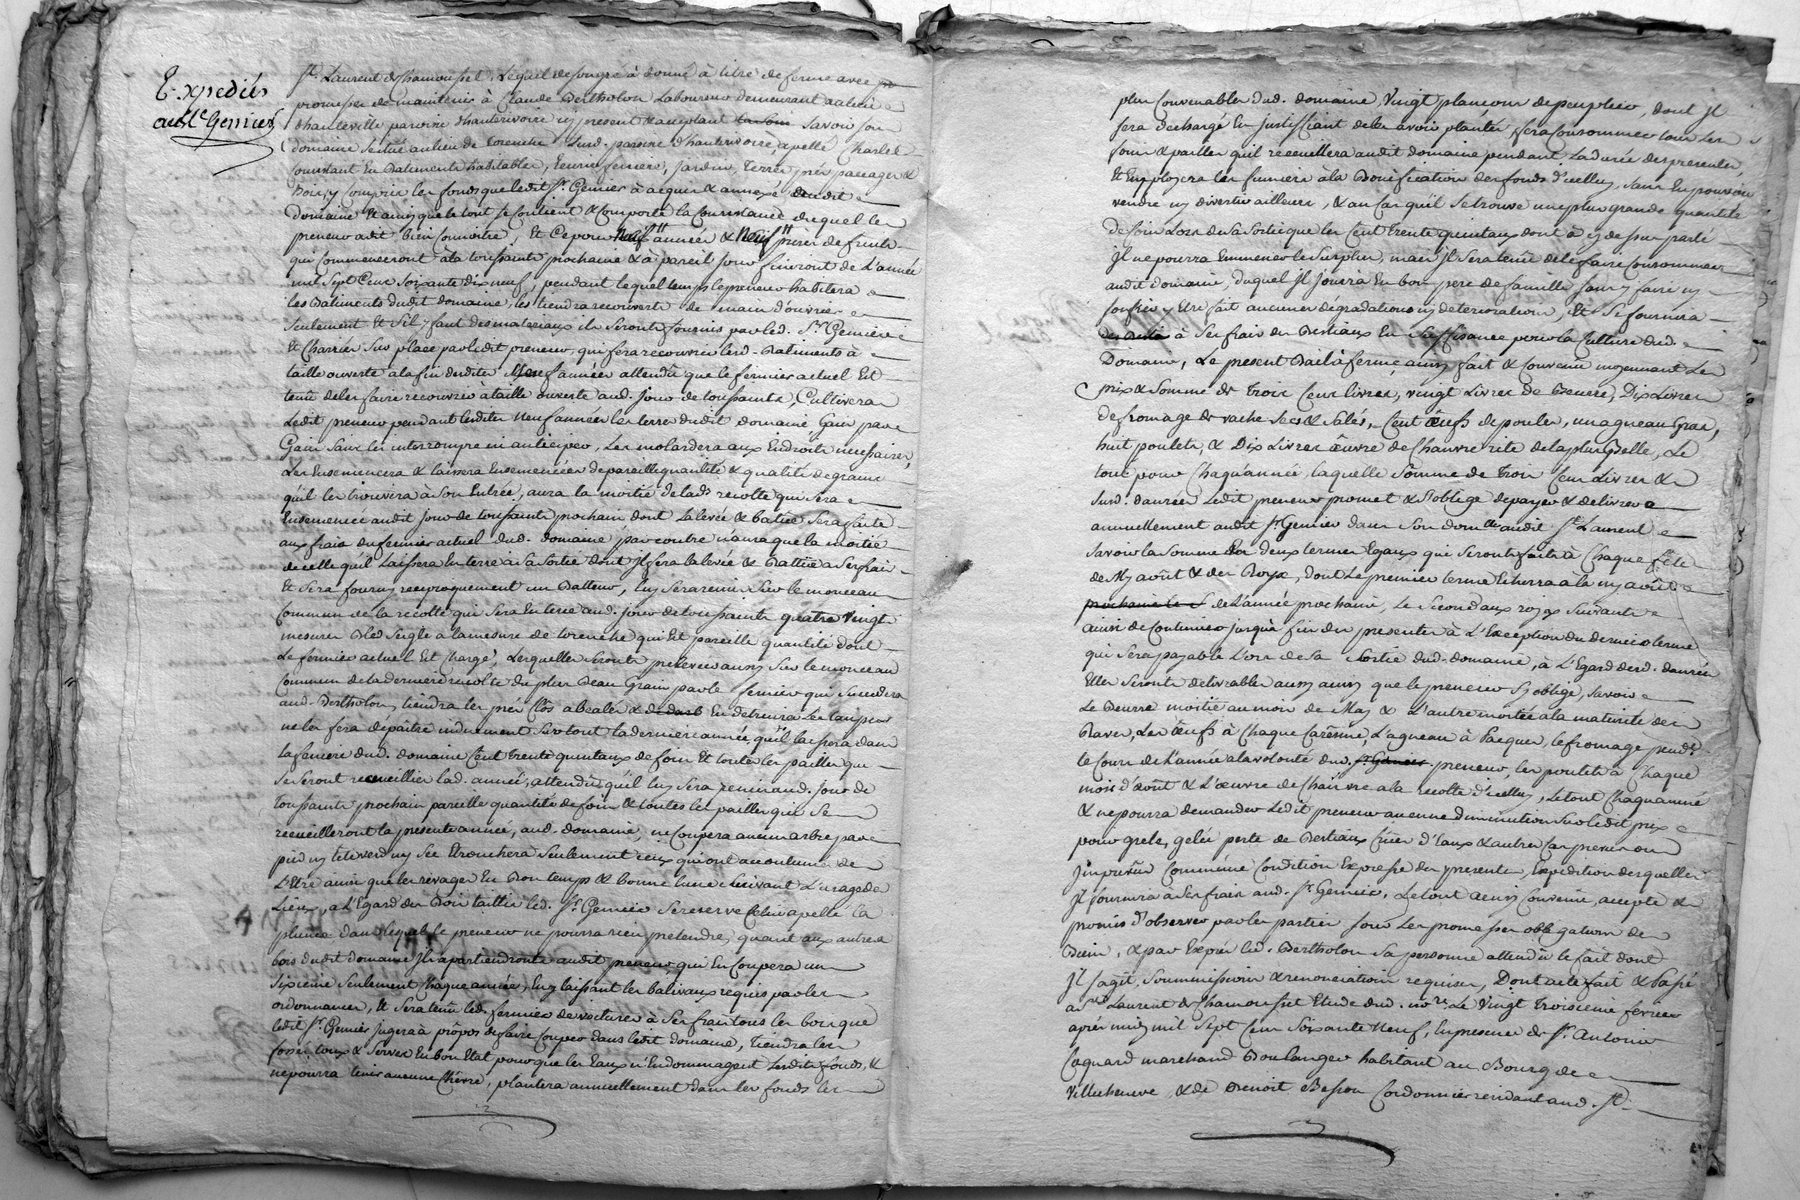 Expediés
au Sr. Gemier
St. Laurent de Chamousset, lequel de son gré a donné à titre de ferme avec
promesse de maintenir à Claude Bertholon Laboureur demeurant au lieu
d'hauteville paroisse d'hauterivoire icy present & acceptant savoir son
domaine situé au lieu de Torenche susd. paroisse d'hauterivoire appellé Charles
Consistant en Batiments habitables, Ecurie feniere, Jardin, Terres prés pacages &
Bois, y Compris les fonds que ledit Sr. Gemier à acquis & annexé audit
domaine Et ainsy que le tout se Contient & Comporte la Consistance duquel les
preneur a dit bien connoitre, Et Ce pour Neuf années & Neuf prises de fruits
qui Commenceront à la toussaints prochaine & à pareil jour finiront de L'année
mil Sept Cent Soixante dix neuf, pendant lequel temps le preneur habitera
les Batiments dudit domaine, les tiendra recouverts de main d'ouvrier
seulement Et s'il y faut des materiaux ils Seront fournis par led. Sr. Gemier
Et Charriés Sur place par ledit preneur, qui fera recouvrir lesd. Batiments à
taille ouverte a la fin desdites Neuf années attendu que le fermier actuel Est
tenu de les faire recouvrir à taille ouverte aud. jour de toussaints, Cultivera
Ledit preneur pendant lesdites neuf années les terres dudit domaine Gain par
Gain Sans les interrompre ni anticiper, Les molardera aux Endroits necessaires,
Les Ensemencera & laissera Ensemencées de pareille quantité & qualité de grains
qu'il les trouvera à Son Entrée, aura la moitié de lad. recolte qui Sera
Ensemencée audit jour de toussaints prochain dont la levée & batties Sera faite
aux frais du fermier actuel dud. domaine par contre n'aura que la moitié
de celle qu'il Laissera En terre à Sa Sortie dont il fera la levée & Battüe a Ses frais
Et Sera fourny reciproquement un Batteur, luy Sera remis Sur le monceau
Commun de la recolte qui Sera En terre aud. jour de toussaints quatre vingt
mesures Bled Seigle à la mesure de torenche qui Est pareille quantité dont
Le fermier actuel Est Chargé, Lesquelles Seront prelevées aussy Sur le monceau
Commun de la derniere recolte du plus Beau Grain par le fermier qui Succedera
aud. Bertholon, tiendra les prés Clos a bealés & En detruira Les taupes
ne les fera dépaitre indument Surtout la derniere année qu'il laissera dans
la feniere dud. domaine Cent trente quintaux de foin Et toutes les pailles qui
Se Seront recueillies lad. année, attendu qu'il luy Sera remis aud. jour de
toussaints prochain pareille quantité de foin & toutes les pailles qui Se
recueilleront la presente année, aud. domaine, ne Coupera aucun arbre par
pied ny tete verd ny Sec Etronchera Seulement Ceux qui ont accoutumé de
L'etre ainsi que les rivages En Bon temps & bonne lune Suivant L'usage de
Lieux, a L'Egard des Bois taillis led. Sr. Gemier Se reserve Celuy appellé la
plume dans lequel le preneur ne pourra rien pretendre, quant aux autres
bois dudit domaine Ils apartiendronts audit preneur, qui En Coupera un
Sixieme Seulement Chaque année, En y laissant les balivaux requis par les
ordonnances, Et Sera tenu led. fermier de voiturer à Ses frais tous les bois que
ledit Sr. Gemier jugera à propos de faire Couper dans ledit domaine, Tiendra les
fossés tous & Serves En bon Etat pour que les Eaux n'Endommagent Lesdits fonds, &
ne pourra tenir aucune Chevre, plantera annuellement dans les fonds les
plus Convenables dud. domaine, Vingt plançons de peuplier, dont Il
Sera dechargé En Justiffiant de les avoir plantés, fera Consommer tous les
foins & pailles qu'il recueillera audit domaine pendant La durée des presentes,
Et Employera les fumiers à la Bonification des fonds d'icelluy, Sans En pouvoir
vendre ny divertir ailleurs, & au Cas qu'il Se trouve une plus grande quantité
de foin Lors de Sa Sortie que les Cent trente quintaux dont a été Sus parlé
Il ne pourra Emmener le Surplus, mais Il Sera tenu de le faire Consommer
audit domaine, duquel Il Jouira En bon pere de famille Sans y faire ny
Souffrir Etre fait aucunes dégradations ny deterioration, Et Se fournira
à Ses frais des Bestiaux En Suffisance pour la Culture dud.
Domaine, Le present Bail à ferme ainsy fait & Convenu moyennant Les
prix & Somme de Trois Cent livres, vingt Livres de Beurre, Dix Livres
de fromage de vache Secs & Salés, Cent Œufs de poules, un agneau Gras,
huit poulets, & Dix Livres œuvre de Chanvre rite de la plus Belle, Le
tout pour Chaqu'année, laquelle Somme de Trois Cent Livres &
Susd. danrées Ledit preneur promet & S'oblige de payer & delivrer
annuellement audit Sr. Gemier dans Son domlle audit St. Laurent
Savoir la Somme En deux termes Egaux qui Seront faits à Chaque fête
de My août & des Roys, dont Le premier terme Echerra à la my août
prochaine le S de L'année prochaine, Le Second aux roys Suivants
ainsi de Continuer jusqu'à fin des presentes à L'Exception du dernier terme
qui Sera payable Lors de Sa Sortie dud. domaine, à L'Egard desd. danrées
Elles Seronts delivrables aussy ainsy que le preneur S'y oblige, Savoir
Le Beurre moitié au mois de May & L'autre moitié a la maturité des
Raves, Les Œufs à Chaque Carême, L'agneau à Paques, le fromage pendt.
le Cours de L'année a la volonté dud. Sr Gemier preneur, les poulets à Chaque
mois d'août & L'œuvre de Chanvre a la recolte d'icelluy, Le tout Chaqu'année
& ne pourra demander Ledit preneur aucune diminution Sur ledit prix
pour grele, gelée perte de Bestiaux Crües d'Eaux & autres Cas prevus ou
Imprevûs Comme une Condition Expresse des presentes, Expedition desquelles
Il fournira à Ses frais aud. Sr. Gemier, Le tout ainsy Convenu, accepté &
promis d'observer par les parties Sous Les promesses obligations de
Biens, & par Exprés led. Bertholon Sa personne attendû le fait dont
Il S'agit, Soummissions & renonciation requises, Dont acte fait & Passé
a St. Laurent de Chamousset Etude dud. nore. Le Vingt Troisieme fevrier
aprés midy mil Sept Cent Soixante Neuf, En presence de Sr. Antoine
Coquard marchand Boulanger habitant au Bourg de
Villecheneve & de Benoit Besson Cordonnier residant aud. St.